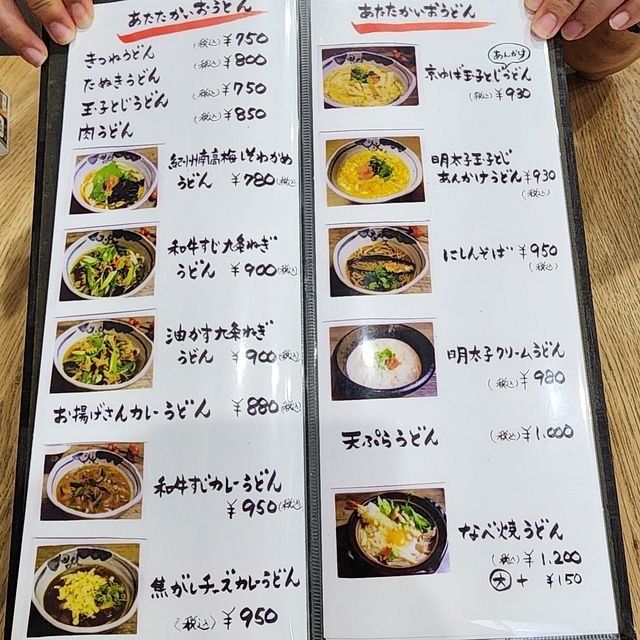 あたたかいおうどん
きつねうどん (税込) ¥750
たぬきうどん (税込) ¥800
玉子とじうどん (税込) ¥750
肉うどん (税込) ¥850
紀州南高梅しそわかめ
うどん ¥780 (税込)
和牛すじ九条ねぎ
うどん ¥900 (税込)
油かす九条ねぎ
うどん ¥900 (税込)
お揚げさんカレーうどん ¥880 (税込)
和牛すじカレーうどん
¥950 (税込)
焦がしチーズカレーうどん
(税込) ¥950
あたたかいおうどん
あんかけ
京ゆば玉子とじうどん
(税込) ¥930
明太子玉子とじ
あんかけうどん ¥930
(税込)
にしんそば ¥950
(税込)
明太子クリームうどん
(税込) ¥980
天ぷらうどん (税込) ¥1,000
なべ焼うどん
(税込) ¥1,200
大 + ¥150